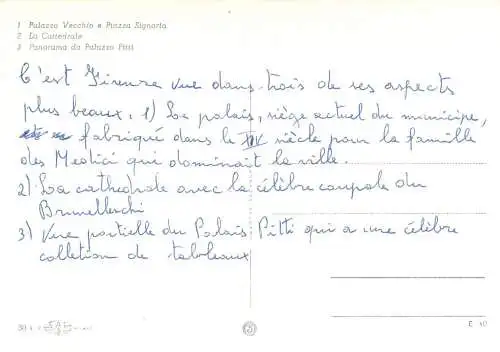 1 Palazzo Vecchio e Piazza Signoria.
2 La Cattedrale
3 Panorama da Palazzo Pitti
C'est Firenze vue dans trois de ses aspects
plus beaux. 1) Le palais, siège actuel du municipe,
fabriqué dans le XIV siècle pour la famille
des Medici qui dominait la ville.
2) La cathedrale avec la célèbre coupole du
Brunelleschi
3) Vue partielle du Palais Pitti qui a une célèbre
colletion de tableaux